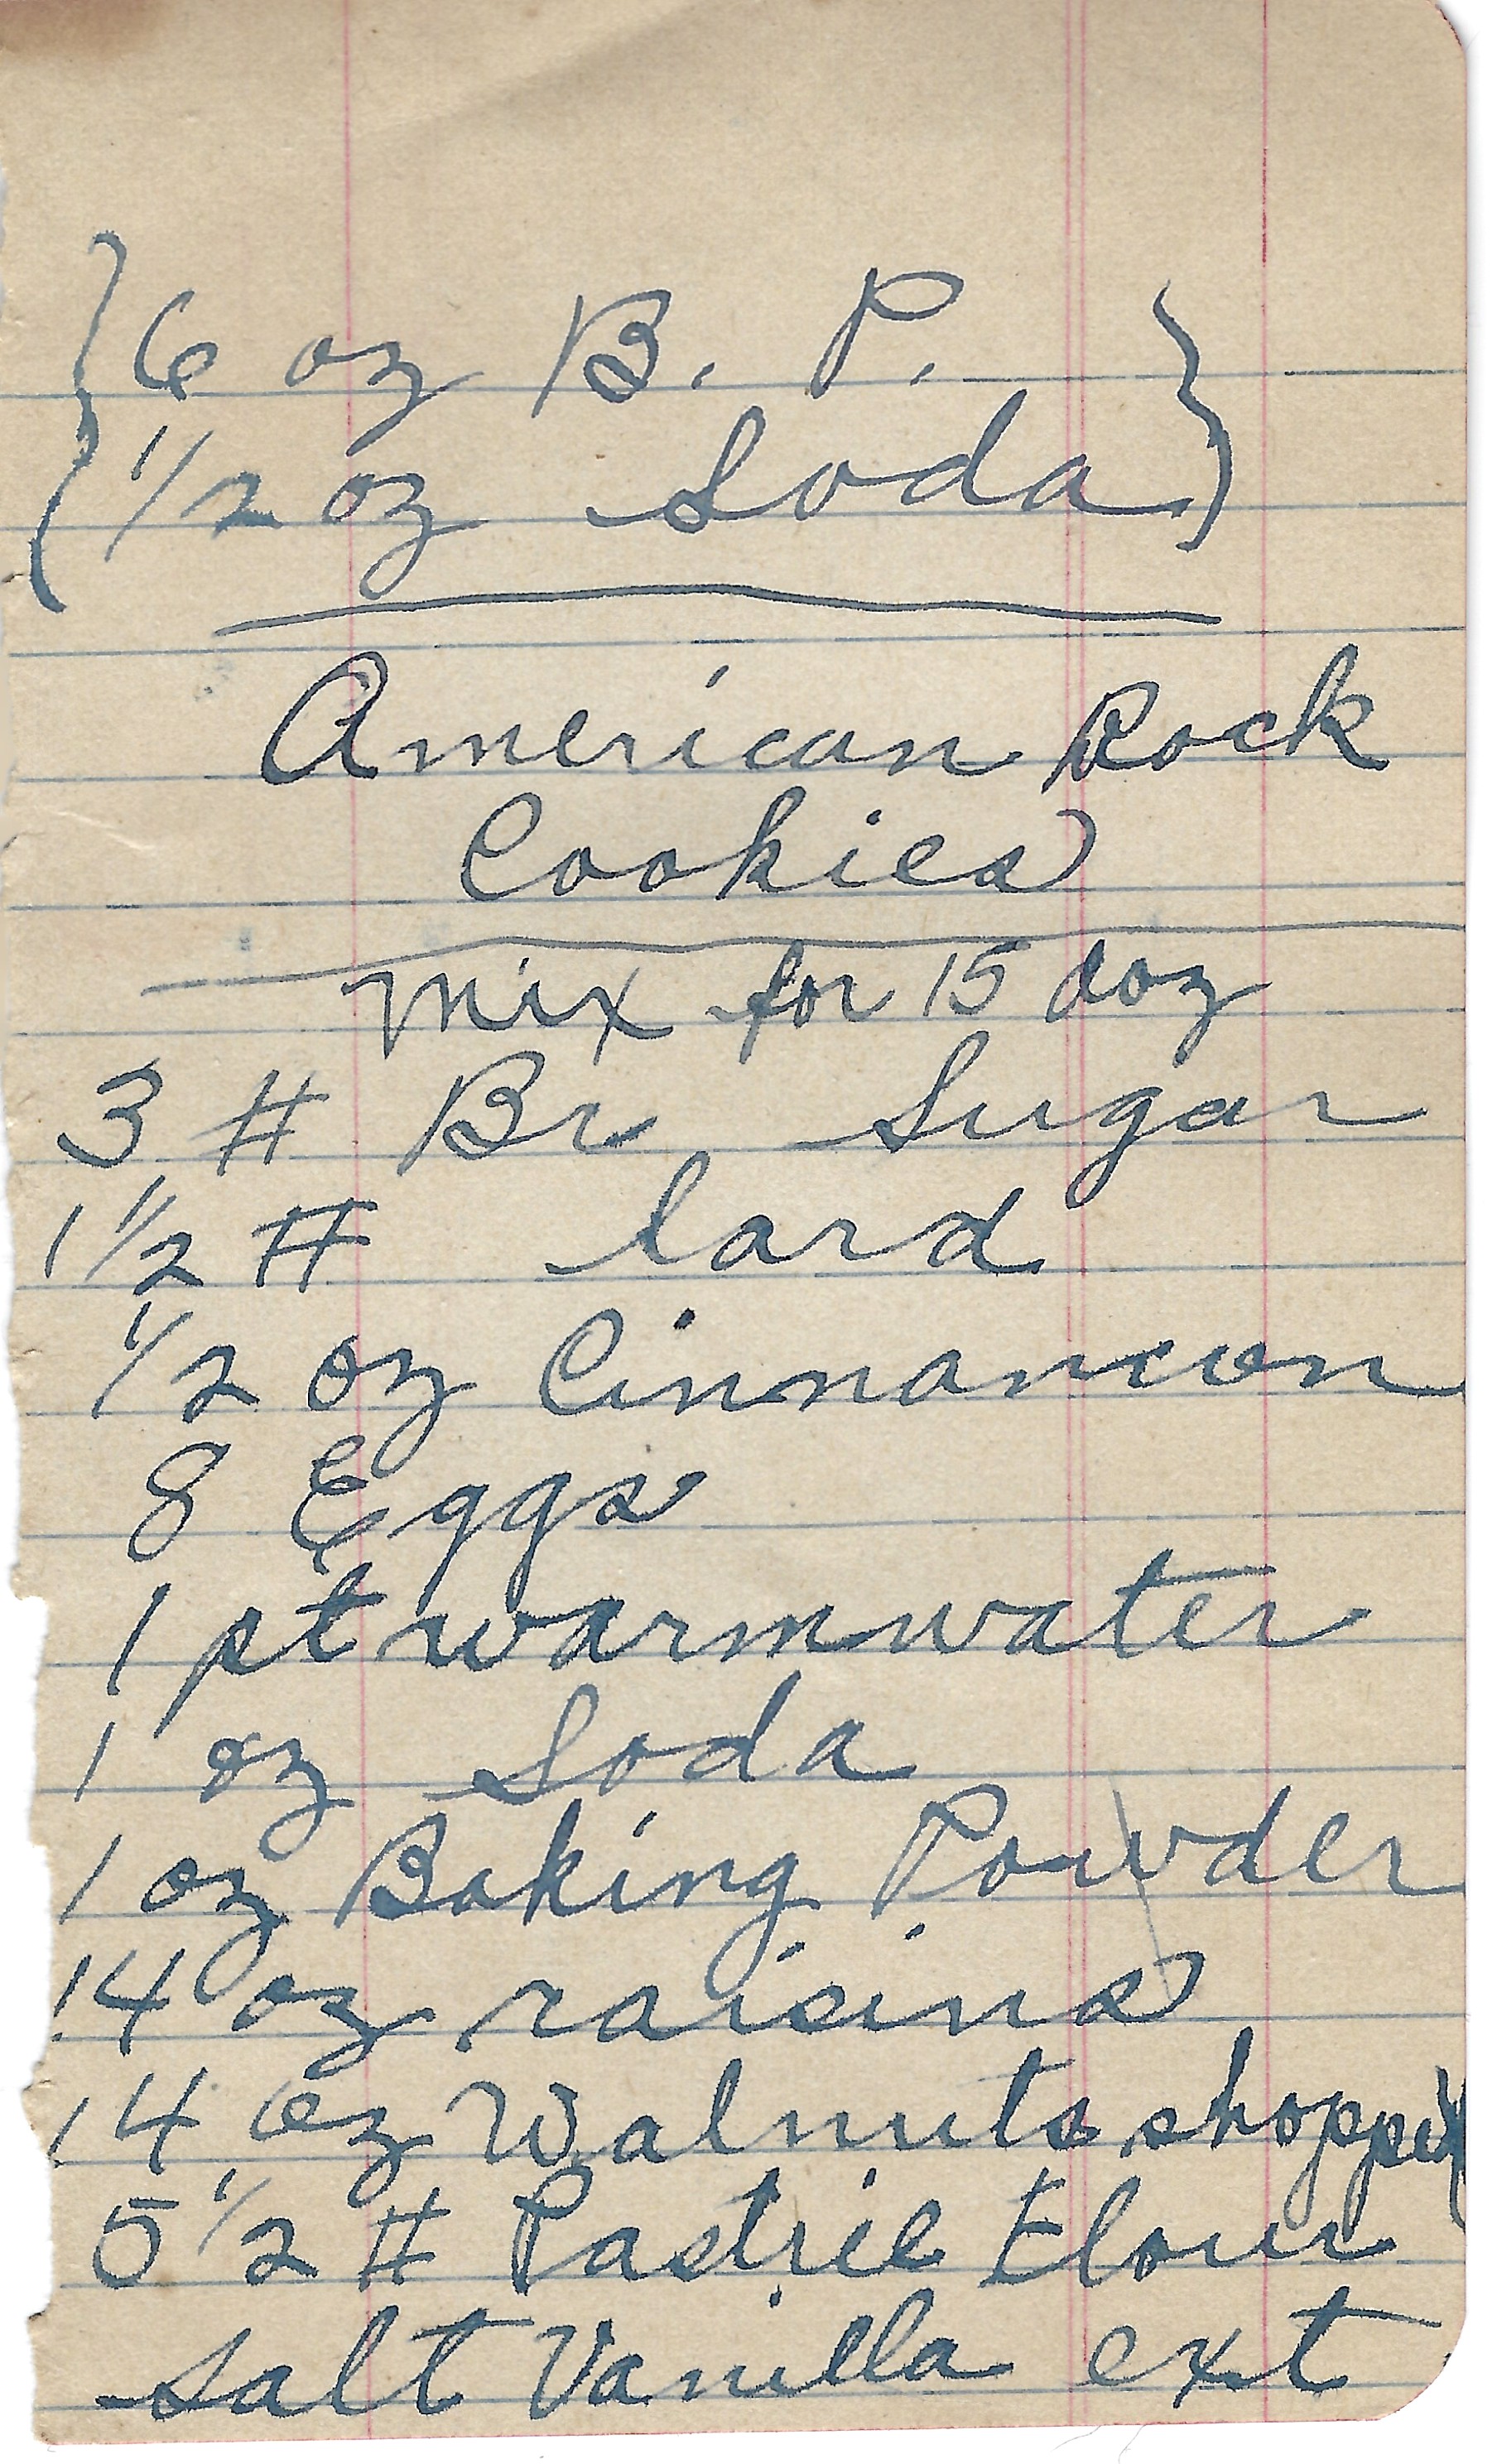 {6 oz B. P.}
{1/2 oz Soda}
American Rock
Cookies
Mix for 15 doz
3 # Br Sugar
1 1/2 # lard
1/2 oz Cinnamon
8 Eggs
1 pt warm water
1 oz Soda
1 oz Baking Powder
14 oz raisins
14 oz Walnuts shopped
5 1/2 # Pastrie Flour
salt Vanilla ext